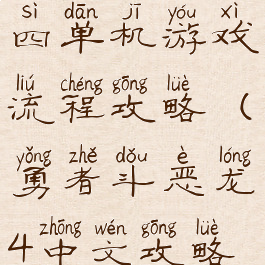 sì dān jī yóu xì
四单机游戏
liú chéng gōng lüè
流程攻略（
yǒng zhě dǒu è lóng
勇者斗恶龙
zhōng wén gōng lüè
4中文攻略